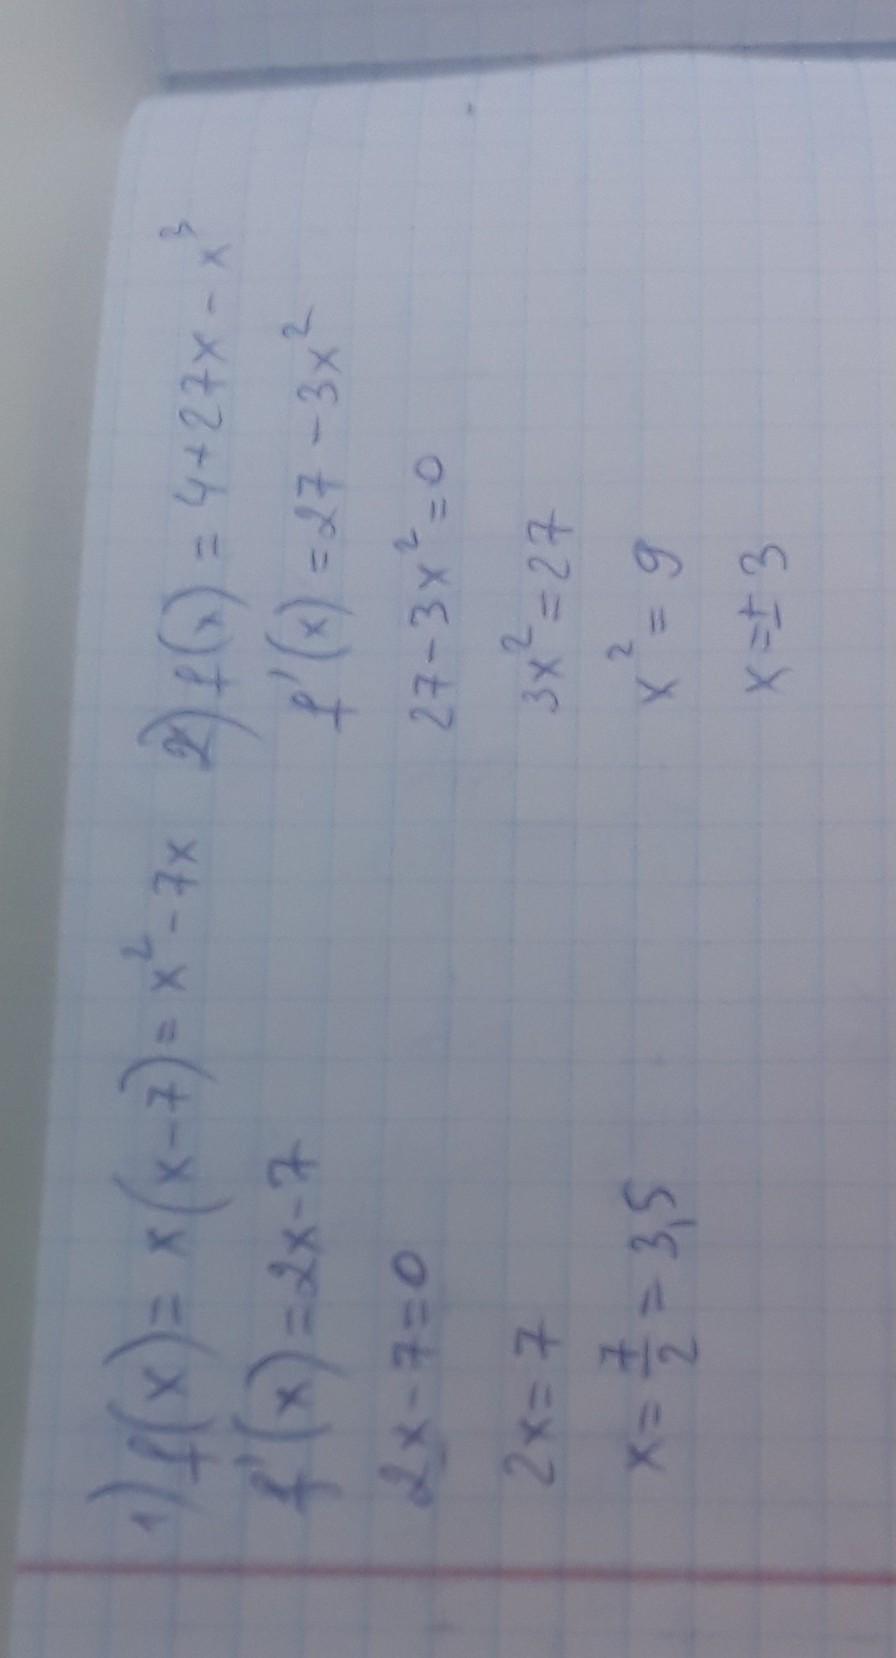 1) f(x) = x(x-7) = x² - 7x
f'(x) = 2x-7
2x-7=0
2x=7
x = 7/2 = 3,5
2) f(x) = 4+27x-x³
f'(x) = 27-3x²
27-3x²=0
3x²=27
x²=9
x=±3